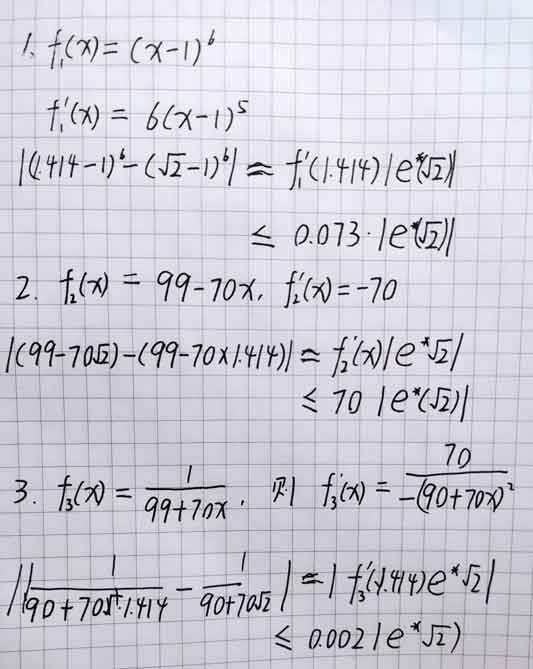 1. f₁(x) = (x-1)⁶
f₁'(x) = 6(x-1)⁵
|(1.414-1)⁶-(√2-1)⁶| ≈ f₁'(1.414)|e*(√2)|
≤ 0.073·|e*(√2)|
2. f₂(x) = 99-70x, f₂'(x)=-70
|(99-70√2)-(99-70×1.414)| ≈ f₂'(x)|e*√2|
≤ 70 |e*(√2)|
3. f₃(x) = 1/(99+70x), 则 f₃'(x) = 70/-(90+70x)²
||1/(90+70·1.414) - 1/(90+70√2)| ≈ |f₃'(1.414)e*√2|
≤ 0.002|e*√2)